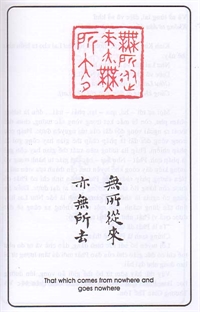 無所從
來亦無
所去
無所從來
亦無所去
That which comes from nowhere and
goes nowhere